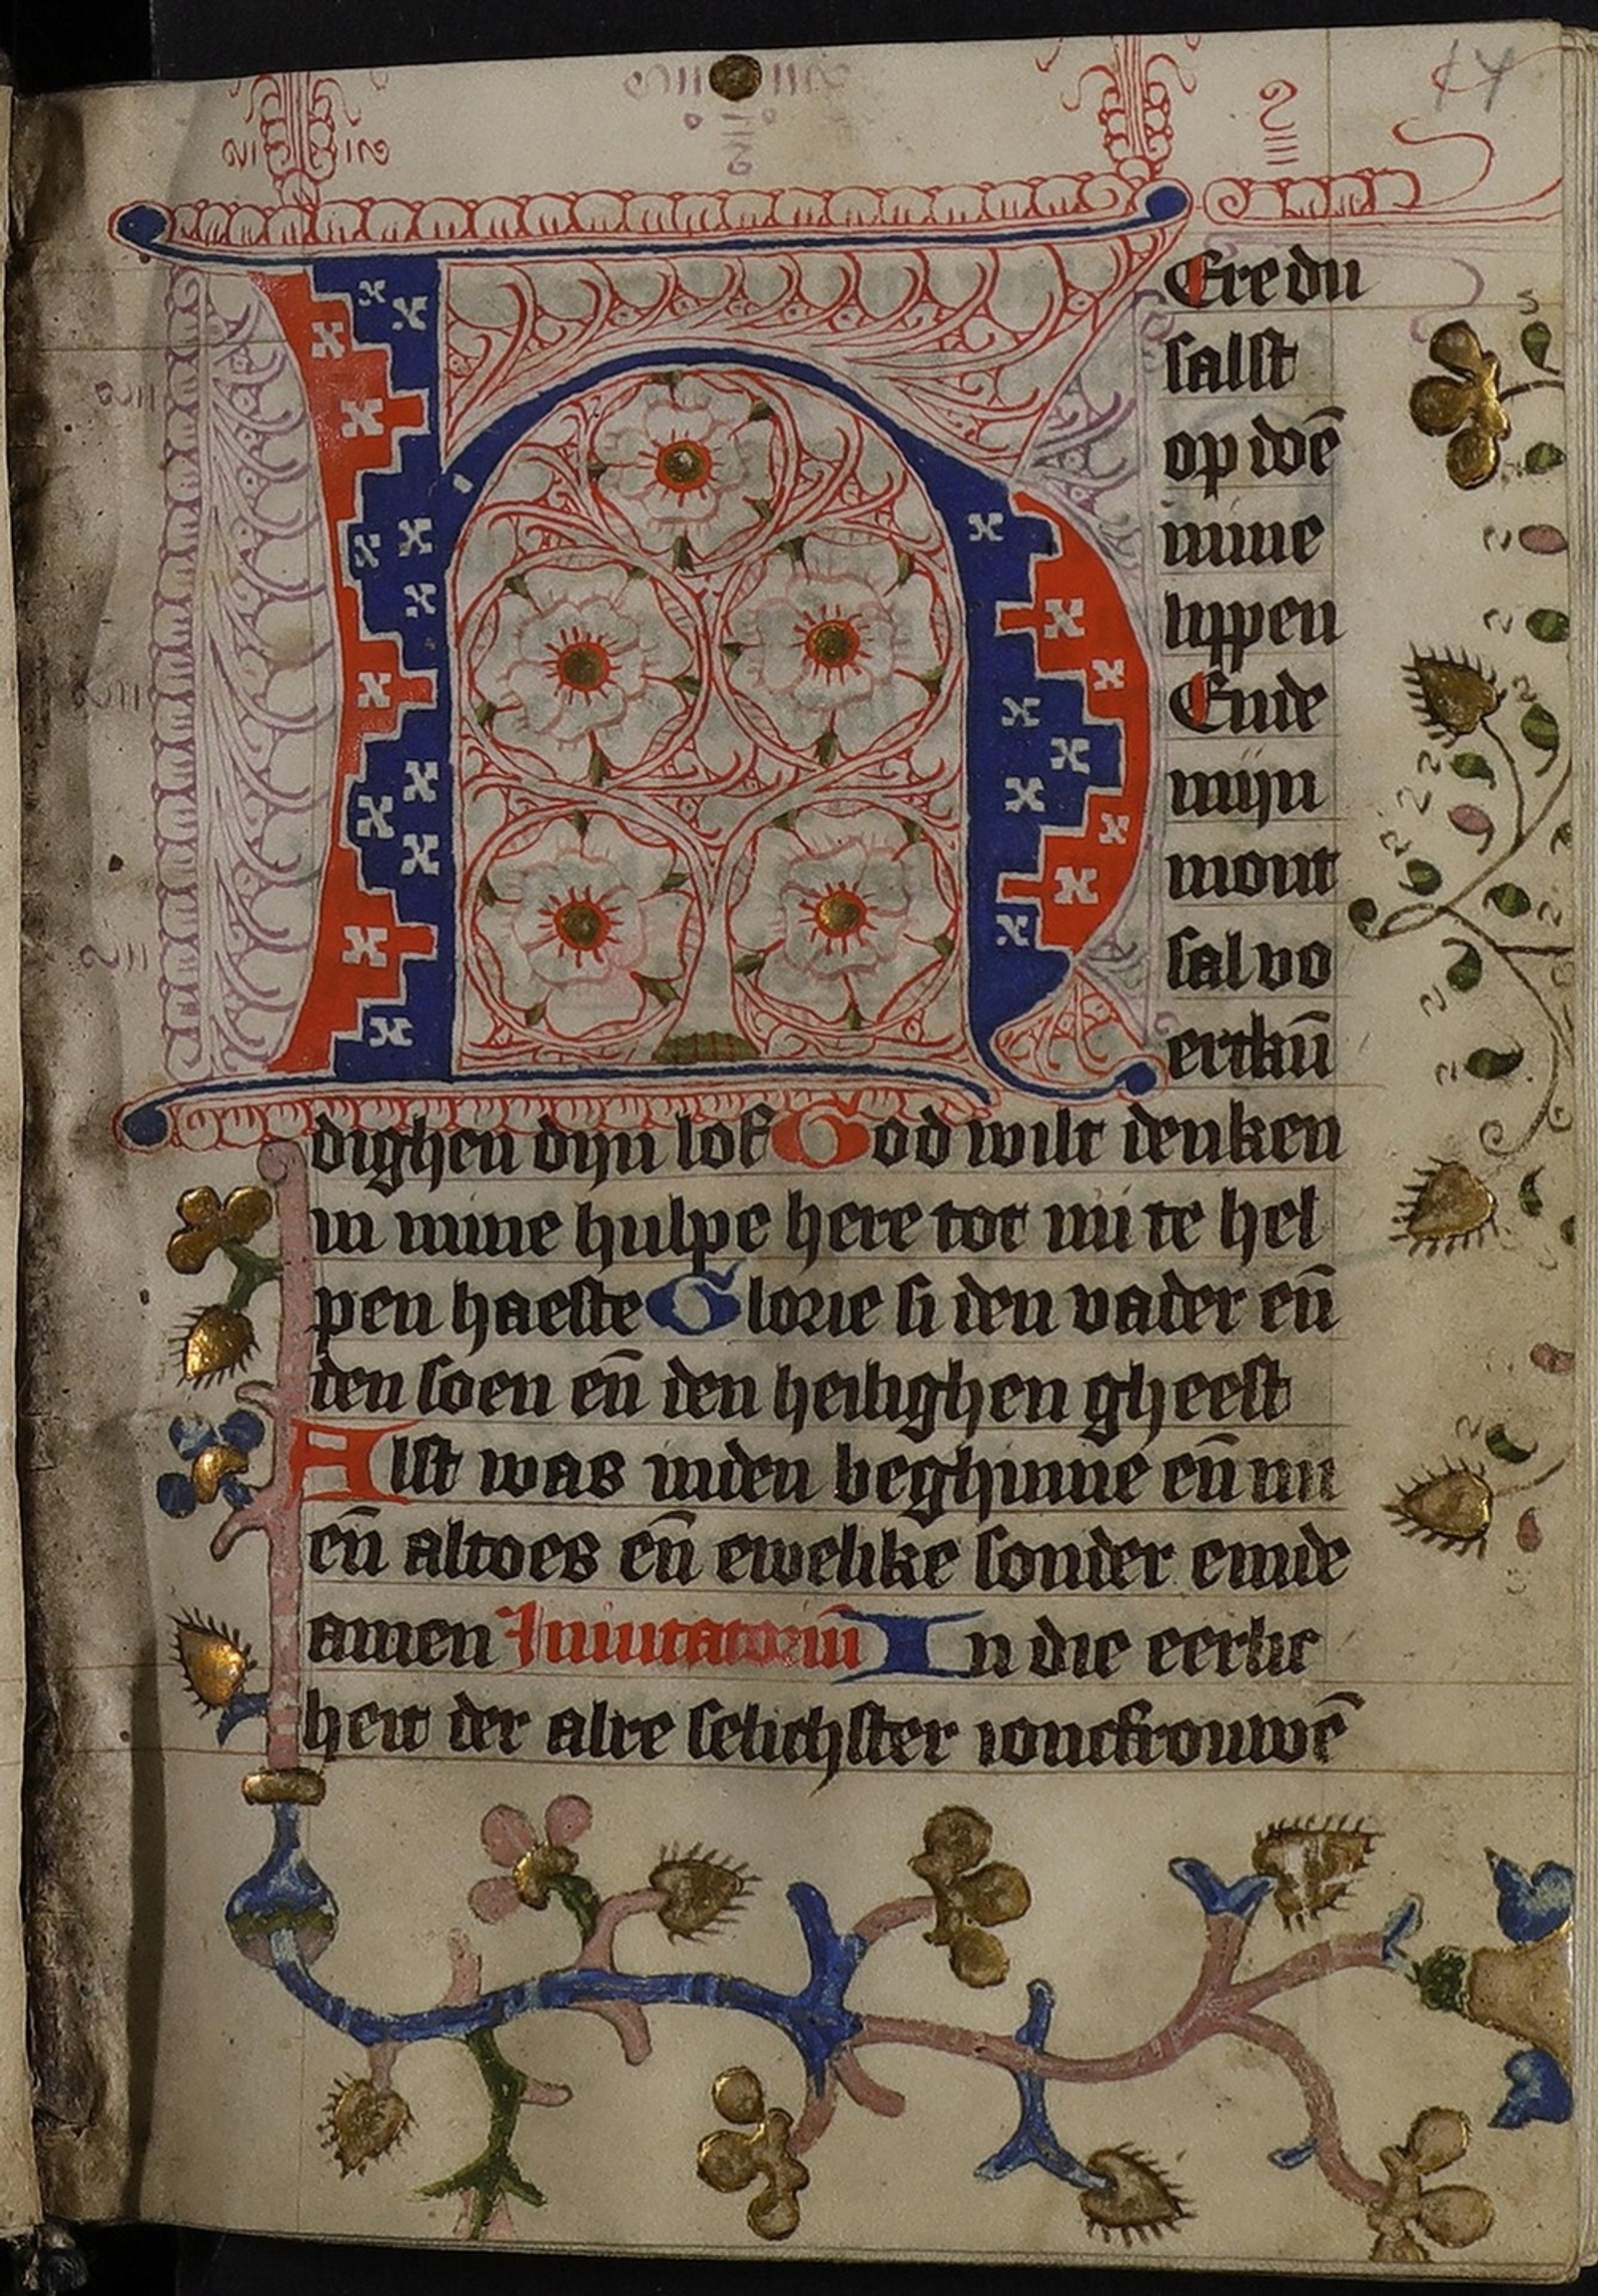 14
HEre du
salst
op doē
mine
lippen
Ende
mijn
mont
sal vo
ertkū
dighen dijn lof God wilt denken
in mine hulpe here tot mi te hel
pen haeste Glorie si den vader eñ
den soen eñ den heilighen gheest
Alst was inden beghinne eñ nu
eñ altoes eñ ewelike sonder einde
amen Inuitatoriū In die eerlic
heit der alre selichster ioncfrouwē